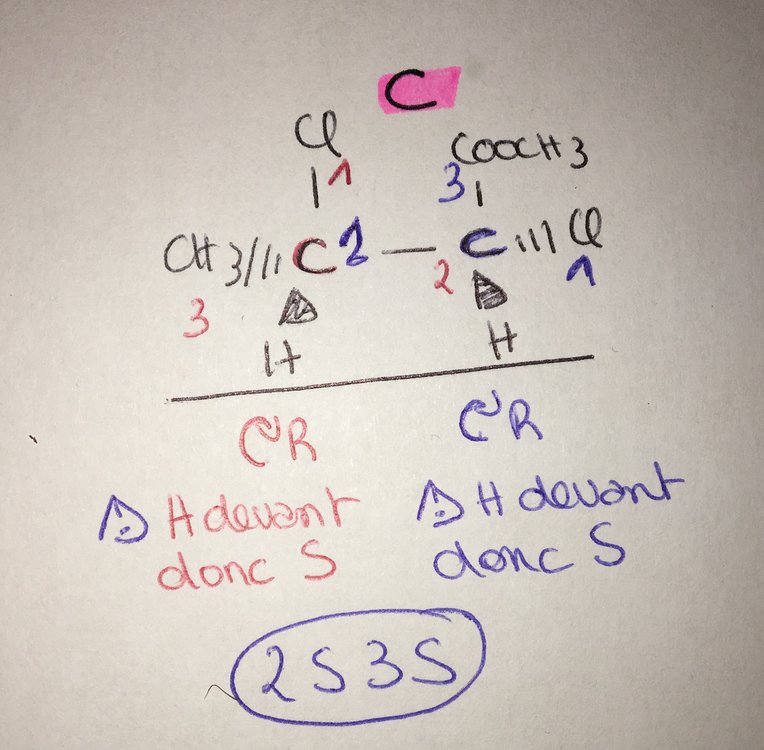 C
Cl COOCH3
1 3
CH3 C 2 — C Cl
3 2 1
H H
R R
⚠ H devant ⚠ H devant
donc S donc S
2S3S